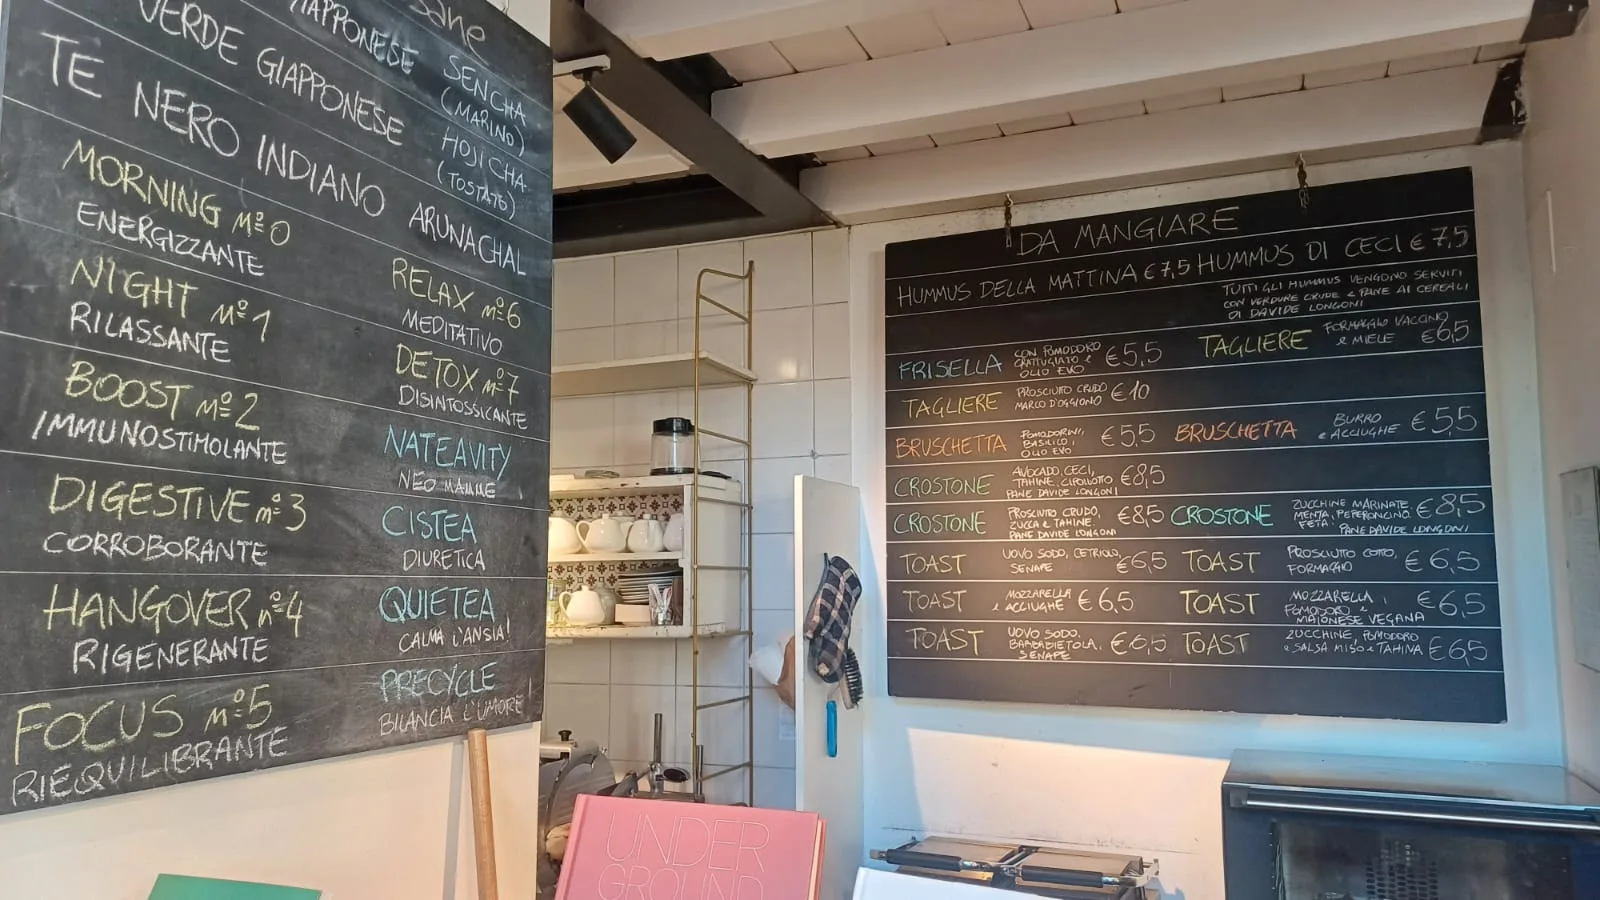 sane
GIAPPONESE SENCHA
(MARINO)
VERDE GIAPPONESE HOJICHA
(TOSTATO)
TE NERO INDIANO ARUNACHAL
MORNING nº0
ENERGIZZANTE
NIGHT nº1
RILASSANTE
BOOST nº2
IMMUNOSTIMOLANTE
DIGESTIVE nº3
CORROBORANTE
HANGOVER nº4
RIGENERANTE
FOCUS nº5
RIEQUILIBRANTE
RELAX nº6
MEDITATIVO
DETOX nº7
DISINTOSSICANTE
NATEAVITY
NEO MAMME
CISTEA
DIURETICA
QUIETEA
CALMA L'ANSIA!
PRECYCLE
BILANCIA L'UMORE!
DA MANGIARE
HUMMUS DELLA MATTINA €7,5 HUMMUS DI CECI €7,5
TUTTI GLI HUMMUS VENGONO SERVITI
CON VERDURE CRUDE E PANE AI CEREALI
DI DAVIDE LONGONI
FRISELLA CON POMODORO
GRATTUGIATO E
OLIO EVO €5,5
TAGLIERE FORMAGGIO VACCINO
E MIELE €6,5
TAGLIERE PROSCIUTTO CRUDO
MARCO D'OGGIONO €10
BRUSCHETTA POMODORINI,
BASILICO,
OLIO EVO €5,5
BRUSCHETTA BURRO
E ACCIUGHE €5,5
CROSTONE AVOCADO, CECI,
TAHINE, CIPOLLOTTO
PANE DAVIDE LONGONI €8,5
CROSTONE PROSCIUTTO CRUDO,
ZUCCA E TAHINE.
PANE DAVIDE LONGONI €8,5
CROSTONE ZUCCHINE MARINATE,
MENTA, PEPERONCINO,
FETA. PANE DAVIDE LONGONI €8,5
TOAST UOVO SODO, CETRIOLO,
SENAPE €6,5
TOAST PROSCIUTTO COTTO,
FORMAGGIO €6,5
TOAST MOZZARELLA
E ACCIUGHE €6,5
TOAST MOZZARELLA,
POMODORO E
MAIONESE VEGANA €6,5
TOAST UOVO SODO,
BARBABIETOLA,
SENAPE €6,5
TOAST ZUCCHINE, POMODORO
E SALSA MISO E TAHINA €6,5
UNDER
GROUND